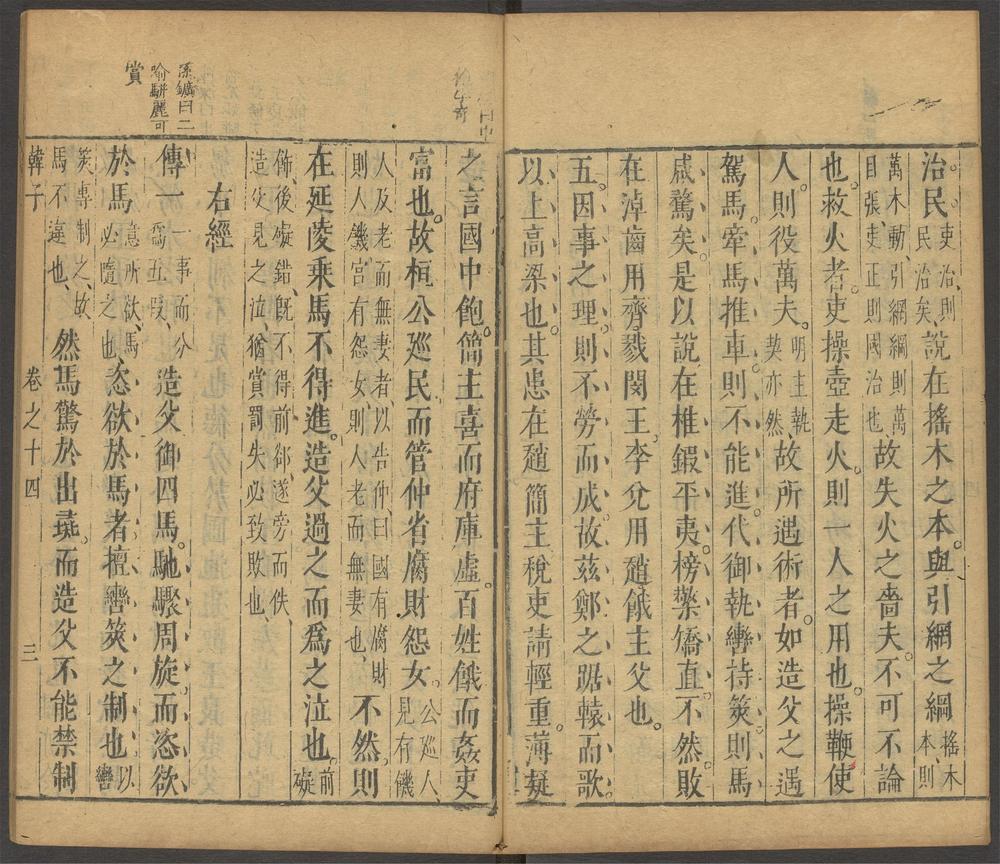 治民吏治則民治矣說在搖木之本與引網之綱搖木本則
萬木動引網綱則萬目張吏正則國治也故失火之嗇夫不可不論
也救火者吏操壺走火則一人之用也操鞭使
人則役萬夫明主執契亦然故所遇術者如造父之遇
駕馬牽馬推車則不能進代御執轡持筴則馬
咸騖矣是以說在椎鍜平夷榜檠矯直不然敗
在淖齒用齊戮閔王李兌用趙餓主父也
五因事之理則不勞而成故茲鄭之踞轅而歌
以上高梁也其患在趙簡主稅吏請輕重薄疑
之言國中飽簡主喜而府庫虛百姓餓而姦吏
富也故桓公巡民而管仲省腐財怨女公巡人見有饑
人及老而無妻者以告仲曰國有腐財則人饑宮有怨女則人老而無妻也不然則
在延陵乘馬不得進造父過之而爲之泣也前礙
飾後礙錯旣不得前郤遂旁而佚造父見之泣猶賞罰失必致敗也
右經
孫鑛曰二
喻駢麗可
賞
傳一一事而分爲五段造父御四馬馳驟周旋而恣欲
於馬意所欲馬必隨之也恣欲於馬者擅轡筴之制也以轡
筴專制之故馬不違也然馬驚於出彘而造父不能禁制
韓子 卷之十四 三